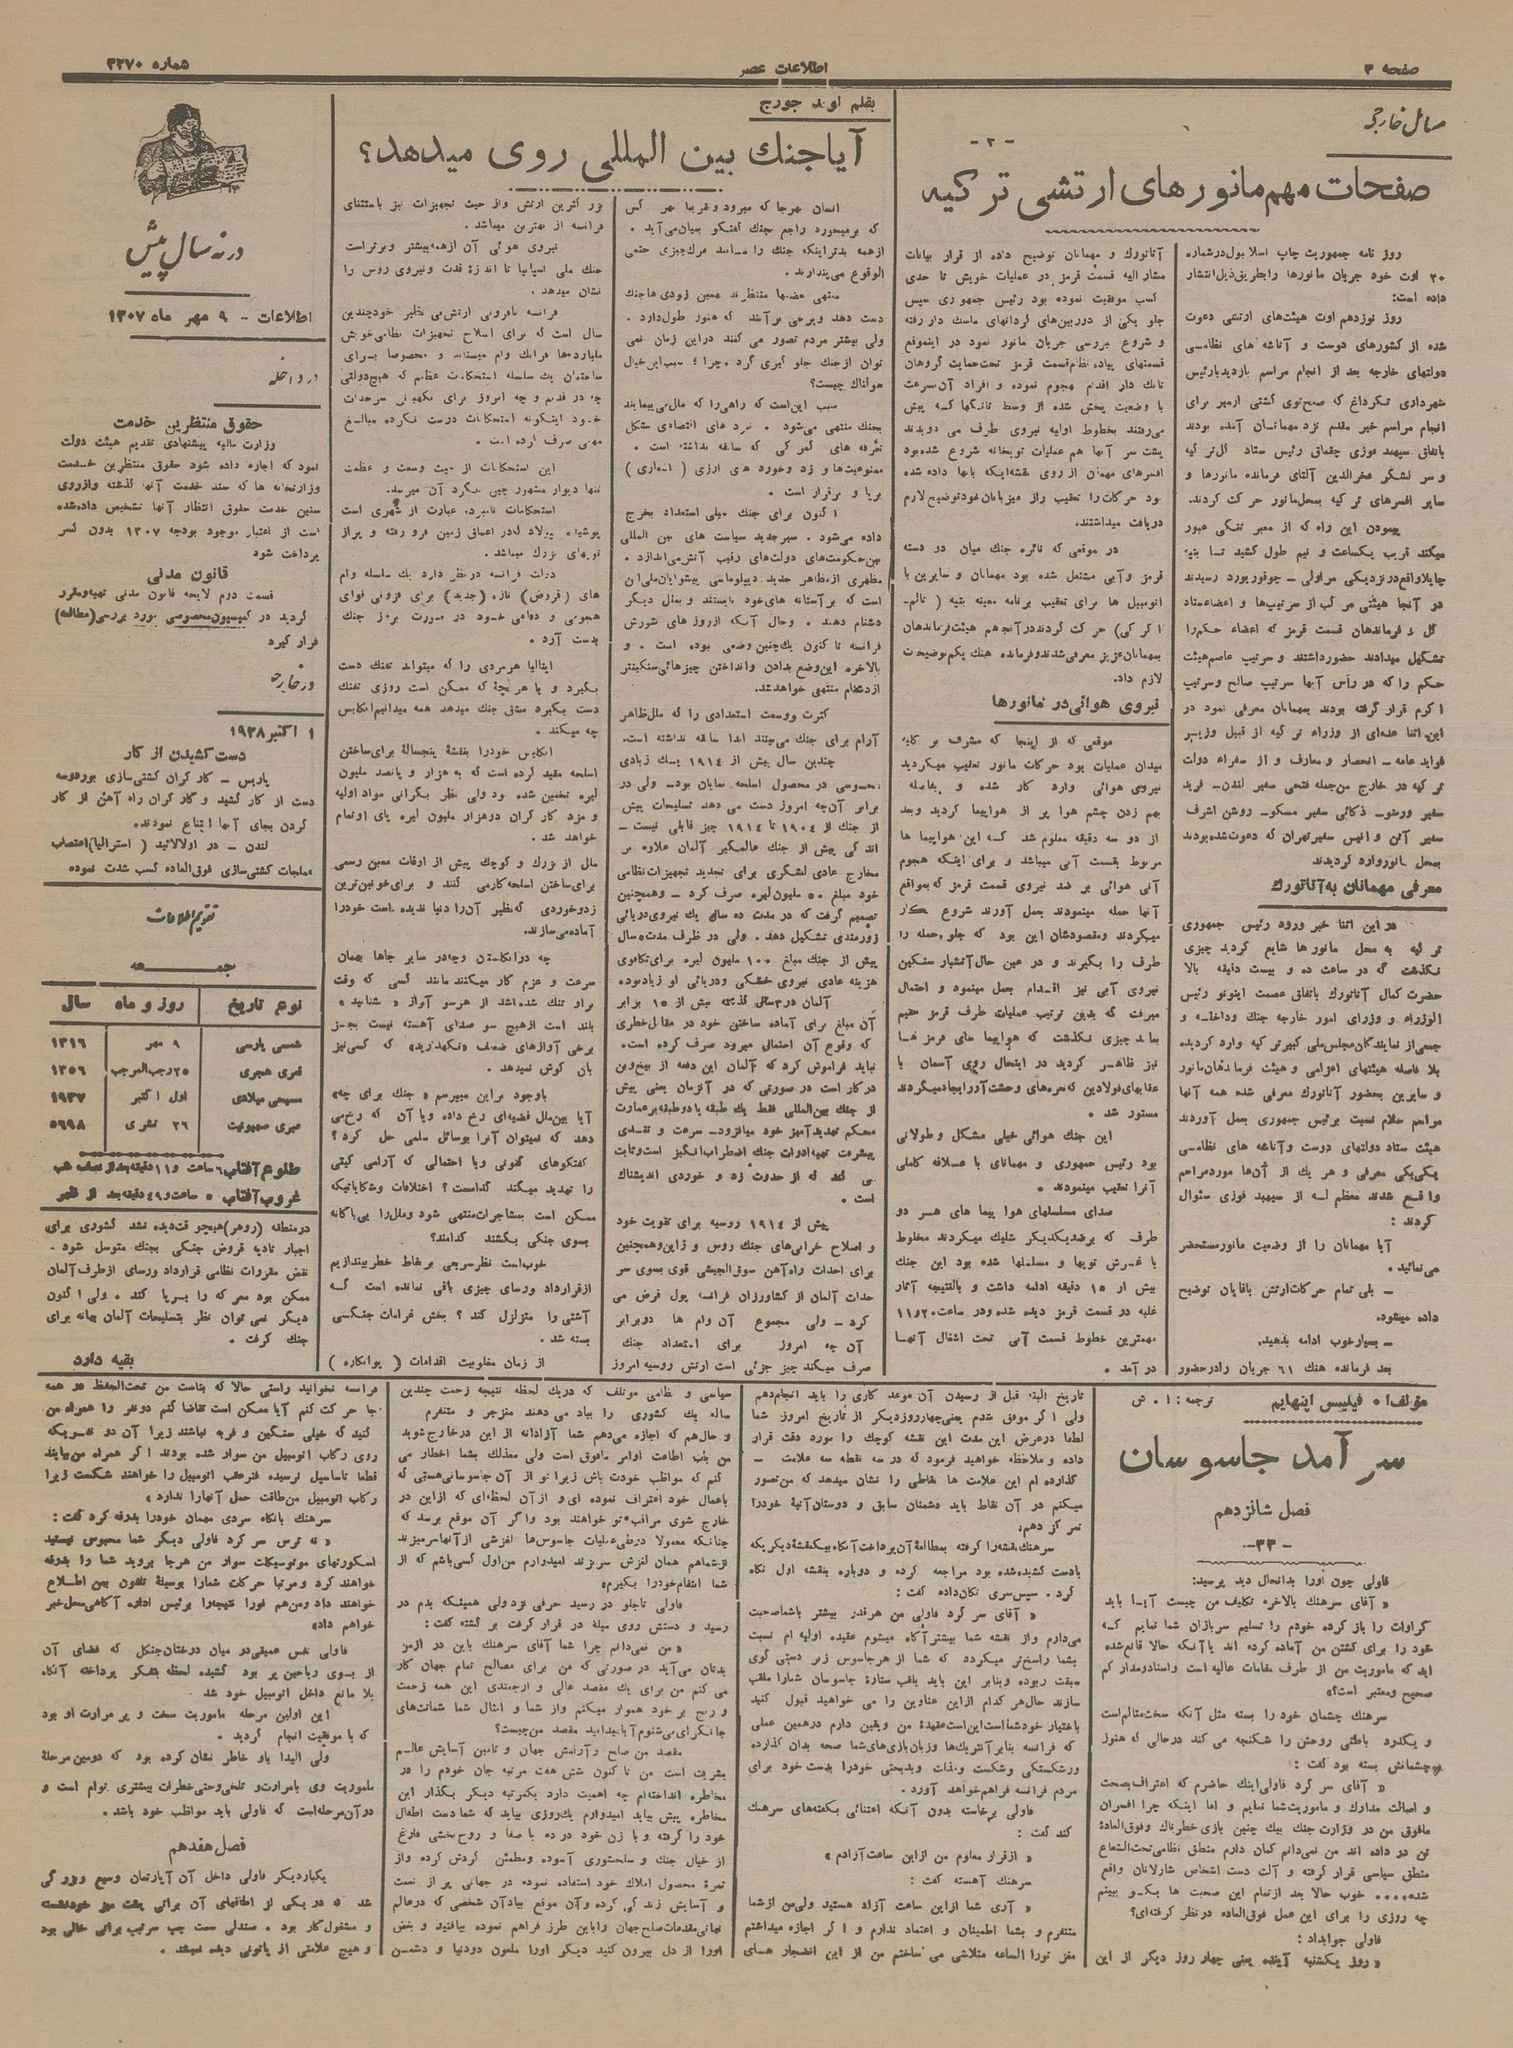 صفحه ۳
اطلاعات عصر
شماره ۳۲۷۰
مسائل خارجی
- ۲ -
صفحات مهم مانورهای ارتشی ترکیه
روز نامه جمهوریت چاپ اسلامبول در شماره
۲۰ اوت خود جریان مانورها را بطریق ذیل انتشار
داده است:
روز نوزدهم اوت هیئت‌های ارتشی دعوت
شده از کشورهای دوست و آتاشه های نظامی
دولتهای خارجه بعد از انجام مراسم بازدید با رئیس
شهرداری تکرداغ که صبح توی کشتی ازمیر برای
انجام مراسم خیر مقدم نزد مهمانان آمده بودند
باتفاق سپهبد فوزی چقماق رئیس ستاد کل ترکیه
و سر لشگر فخرالدین آلتای فرمانده مانورها و
سایر افسرهای ترکیه بمحل مانور حرکت کردند.
پیمودن این راه که از معبر تنگی عبور
میکند قریب یکساعت و نیم طول کشید تا
در آنجا هیئتی مرکب از سرتیپ‌ها و اعضاء ستاد
کل و فرماندهان قسمت قرمز که اعضاء حکم را
تشکیل میدادند حضور داشتند و سرتیپ عاصم هیئت
حکم را که در رأس آنها سرتیپ صالح و سرتیپ
اکرم قرار گرفته بودند بمهمانان معرفی نمود در
این اثنا عده‌ای از وزراء ترکیه از قبیل وزیر
فواید عامه - انحصار و معارف و از سفراء دولت
ترکیه در خارج من جمله فتحی سفیر لندن - فرید
سفیر ورشو - ذکائی سفیر مسکو - روشن اشرف
سفیر آتن و انیس سفیر تهران که دعوت شده بودند
بمحل مانور وارد گردیدند
معرفی مهمانان به آتاتورك
در این اثنا خبر ورود رئیس جمهوری
ترکیه به محل مانورها شایع گردید چیزی
نگذشت که در ساعت ده و بیست دقیقه بالا
حضرت کمال آتاتورك باتفاق عصمت اینونو رئیس
الوزراء و وزرای امور خارجه جنك و داخله و
جمعی از نمایندگان مجلس ملی کبیر ترکیه وارد گردیده
بلا فاصله هیئتهای اعزامی و هیئت فرماندهان مانور
و سایرین بحضور آتاتورك معرفی شده همه آنها
مراسم سلام نسبت برئیس جمهوری بعمل آوردند
هیئت ستاد دولتهای دوست و آتاشه های نظامی
یکی یکی معرفی و هر یك از آنها مورد مراحم
واقع شدند معظم له از سپهبد فوزی سئوال
کردند :
آیا مهمانان را از وضعیت مانور مستحضر
می‌نمائید.
- بلی تمام حرکات ارتش باقایان توضیح
داده میشود.
- بسیار خوب ادامه بدهید.
بعد فرمانده هنك ۶۱ جریان را در حضور
آتاتورك و مهمانان توضیح داده از قرار بیانات
مشار الیه قسمت قرمز در عملیات خویش تا حدی
کسب موفقیت نموده بود رئیس جمهوری سپس
جلو یکی از دوربین‌های گردانهای ماسك دار رفته
و شروع ببررسی جریان مانور نمود در اینموقع
قسمتهای پیاده نظام قسمت قرمز تحت حمایت گروهان
تانك دار اقدام بهجوم نموده و افراد آن بسرعت
با وضعیت پخش شده از وسط تانگها که پیش
میرفتند بخطوط اولیه نیروی طرف می دویدند
پشت سر آنها هم عملیات توپخانه شروع شده بود
افسرهای مهمان از روی نقشه‌ایکه بانها داده شده
بود حرکات را تعقیب و از میزبانان خود توضیح لازم
دریافت میداشتند.
در موقعی که نائره جنك میان دو دسته
قرمز و آبی مشتعل شده بود مهمانان و سایرین با
اتومبیل ها برای تعقیب برنامه معینه بتپه (تاتم-
اکرکی) حرکت کردند در آنجا هم هیئت فرماندهان
بمهمانان عزیز معرفی شدند و فرمانده هنك یکم توضیحات
لازم داد.
نیروی هوائی در مانورها
موقعی که از اینجا که مشرف بر کلیه
میدان عملیات بود حرکات مانور تعقیب میگردید
نیروی هوائی وارد کار شده و بفاصله
بهم زدن چشم هوا پر از هواپیما گردید وبعد
از دو سه دقیقه معلوم شد که این هواپیما ها
مربوط بقسمت آبی میباشد و برای اینکه هجوم
آنی هوائی بر ضد نیروی قسمت قرمز که بمواقع
آنها حمله مینمودند بعمل آورند شروع بکار
میکردند و مقصودشان این بود که جلو حمله را
طرف را بگیرند و در عین حال آتشبار سنگین
نیروی آبی نیز اقدام بعمل مینمود و احتمال
میرفت که بدین ترتیب عملیات طرف قرمز عقیم
بماند چیزی نگذشت که هواپیما های قرمز هم
نیز ظاهر گردید در اینحال روی آسمان با
عقابهای فولادین که صحنه‌های وحشت آور ایجاد میکردند
مستور شد.
این جنك هوائی خیلی مشکل و طولانی
بود رئیس جمهوری و مهمانان با علاقه کاملی
آنرا تعقیب مینمودند.
صدای مسلسلهای هوا پیما های هر دو
طرف که برضد یکدیگر شلیك میکردند مخلوط
با غرش توپها و مسلسلها شده بود این جنك
بیش از ۱۵ دقیقه ادامه داشت و بالنتیجه آثار
غلبه در قسمت قرمز دیده شده و در ساعت ۲۰ و۱۱
مهمترین خطوط قسمت آبی تحت اشغال آنها
در آمد.
بقلم لوید جورج
آیا جنك بین المللی روی میدهد؟
انسان بهرجا که میرود و تقریبا بهر کس
که برمیخورد راجع بجنك گفتگو بمیان می‌آید.
از همه بدتر اینکه جنك را مانند مرك چیزی حتمی
الوقوع می‌پندارند.
منتهی بعضها منتظرند همین زودی‌ها جنك
دست دهد و برخی بر آنند که هنوز طول دارد.
ولی بیشتر مردم تصور می کنند در این زمان نمی
توان از جنك جلو گیری کرد. چرا؟ سبب این خیال
هولناك چیست؟
سبب این است که راهی را که ملل می پیمایند
بجنك منتهی میشود. نبرد های اقتصادی بشکل
تعرفه های گمرکی که سابقه نداشته است.
ممنوعیت‌ها و زد و خورد های ارزی (اسعاری)
برپا و برقرار است.
اکنون برای جنك خیلی استعداد بخرج
داده می‌شود. سیر جدید سیاست های بین المللی
بین حکومت‌های دولت‌های رقیب آتش می‌اندازد.
مظهری از مظاهر جدید دیپلوماسی پیشوایان ملی آن
است که بر آستانه های خود بایستند و بملل دیگر
دشنام دهند. و حال آنکه از روز های شورش
فرانسه تا کنون یك چنین وضعی نبوده است. و
بالاخره این وضع بدادن و انداختن چیزهائی سنگینتر
از دشنام منتهی خواهد شد.
کثرت ووسعت استعدادی را که ملل ظاهر
آرام برای جنك می‌بینند ابدا سابقه نداشته است.
چندین سال پیش از ۱۹۱۴ یك زیادی
محسوسی در محصول اسلحه نمایان بود. ولی در
برابر آن‌چه امروز دست می دهد تسلیحات پیش
از جنك از ۱۹۰۴ تا ۱۹۱۴ چیز قابلی نیست -
اندکی پیش از جنك عالمگیر آلمان علاوه بر
مخارج عادی لشگری برای تجدید تجهیزات نظامی
خود مبلغ ۵۰ ملیون لیره صرف کرد - و همچنین
تصمیم گرفت که در مدت ده سال یك نیروی دریائی
زورمندی تشکیل دهد. ولی در ظرف مدت ده سال
پیش از جنك مبلغ ۱۰۰ ملیون لیره برای تکاپوی
هزینه عادی نیروی خشکی و دریائی او زیاد بوده
آلمان در ۳ سال گذشته بیش از ۱۵ برابر
آن مبلغ برای آماده ساختن خود در مقابل خطری
که وقوع آن احتمالی میرود صرف کرده است.
نباید فراموش کرد که آلمان این دفعه از بیخ و بن
در کار است در صورتی که در آنزمان یعنی پیش
از جنك بین‌المللی فقط یك طبقه یا دو طبقه بر عمارت
محکم تهدید آمیز خود میافزود. سرعت و تندی
پیشرفت تهیه ادوات جنك اضطراب انگیز است و ثابت
است.
پیش از ۱۹۱۴ روسیه برای تقویت خود
و اصلاح خرابی‌های جنك روس و ژاپن وهمچنین
برای احداث راه آهن سوق‌الجیشی قوی بسوی سر
حدات آلمان از کشاورزان فرانسه پول قرض می
کرد - ولی مجموع آن وام ها دو برابر
آن چه امروز برای استعداد جنك
صرف میکند چیز جزئی است ارتش روسیه امروز
بزرگترین ارتش و از حیث تجهیزات نیز باستثنای
فرانسه از بهترین میباشد.
نیروی هوائی آن از همه بیشتر و برتر است
جنك ملی اسپانیا تا اندازۀ قدرت و نیروی روس را
نشان میدهد.
فرانسه با فزونی ارتش بی نظیر خود چندین
سال است که برای اصلاح تجهیزات نظامی خویش
ملیاردها فرانك وام میستاند و مخصوصا برای
ساختمان یك سلسله استحکامات عظیم که هیچ دولتی
چه در قدیم و چه امروز برای نگهبانی سرحدات
خود اینگونه استحکامات درست نکرده مبالغ
مهمی صرف کرده است.
این استحکامات از حیث وسعت و عظمت
تنها دیوار مشهور چین بگرد آن میرسد.
استحکامات نامبرده عبارت از شهری است
پوشیده بپولاد که در اعماق زمین فرو رفته و پر از
توپهای بزرگ میباشد.
دولت فرانسه در نظر دارد یك سلسله وام
های (قروض) تازه (جدید) برای فزونی قوای
هجومی و دفاعی خود در صورت بروز جنك
بدست آرد.
ایتالیا هر مردی را که میتواند تفنك دست
بگیرد و یا هر بچۀ که ممکن است روزی تفنك
دست بگیرد مشق جنك میدهد همه میدانیم انگلیس
چه میکند.
انگلیس خود را بنقشۀ پنجسالۀ برای ساختن
اسلحه مقید کرده است که به هزار و پانصد ملیون
لیره تخمین شده بود ولی نظر بگرانی مواد اولیه
و مزد کار گران دوهزار ملیون لیره پای او تمام
خواهد شد.
ملل از بزرك و کوچك بیش از اوقات معین رسمی
برای ساختن اسلحه کار می کنند و برای خونین ترین
زد و خوردی که نظیر آن را دنیا ندیده است خود را
آماده می‌سازند.
چه در انگلستان و چه در سایر جاها بهمان
سرعت و عزم کار میکنند مانند کسی که وقت
بر او تنك شده باشد از هر سو آواز « شتابید »
بلند است از هیچ سو صدای آهسته نیست بجز
برخی آوازهای ضعیف «نگهدارید» که کسی نیز
بآن گوش نمیدهد.
باوجود بر این میپرسم « جنك برای چه»
آیا بین ملل قضیه‌ای رخ داده و یا آن که رخ می
دهد که نمیتوان آنرا بوسائل سلمی حل کرد؟
گفتگوهای کنونی و یا احتمالی که آرامی گیتی
را تهدید میکند کدامست؟ اختلافات و شکایاتیکه
ممکن است بمشاجرات منتهی شود و ملل را بی باکانه
بسوی جنگی بکشند کدامند؟
خوب است نظر سریعی بر نقاط خطر بیندازیم
از قرارداد ورسای چیزی باقی نمانده است که
آشتی را متزلزل کند؟ بخش غرامات جنگی
بسته شد.
از زمان مغلوبیت اقدامات ( پوانکاره )
در منطقه (روهر) هیچوقت دیده نشد کشوری برای
اجبار تادیه قروض جنگی بجنك متوسل شود.
نقض مقررات نظامی قرارداد ورسای از طرف آلمان
ممکن بود معرکه را برپا کند. ولی اکنون
دیگر نمی توان نظر بتسلیحات آلمان بهانه برای
جنك گرفت.
بقیه دارد
در نه سال پیش
اطلاعات - ۹ مهر ماه ۱۳۰۷
در داخله
حقوق منتظرین خدمت
وزارت مالیه پیشنهادی تقدیم هیئت دولت
نمود که اجازه داده شود حقوق منتظرین خدمت
وزارتخانه ها که سند خدمت آنها گذشته و از روی
سنین خدمت حقوق انتظار آنها تشخیص داده شده
است از اعتبار موجود بودجه ۱۳۰۷ بدون کسر
پرداخت شود
قانون مدنی
قسمت دوم لایحه قانون مدنی تهیه و مقرر
گردید در کمیسیون مخصوصی مورد بررسی (مطالعه)
قرار گیرد
در خارجه
۱ اکتبر ۱۹۲۸
دست کشیدن از کار
پاریس - کارگران کشتی سازی بوردوسه
دست از کار کشید و کارگران راه آهن از کار
کردن بجای آنها امتناع نمودند.
لندن - در اولالائید ( استرالیا) اعتصاب
عملجات کشتی سازی فوق العاده کسب شدت نموده
تقویم اطلاعات
جمعه
نوع تاریخ | روز و ماه | سال
شمسی پارسی | ۹ مهر | ۱۳۱۶
قمری هجری | ۲۵ رجب المرجب | ۱۳۵۶
مسیحی میلادی | اول اکتبر | ۱۹۳۷
عبری صهیونیت | ۲۶ تشری | ۵۶۹۸
طلوع آفتاب ۶ ساعت و ۱۱ دقیقه بعد از نصف شب
غروب آفتاب ۵ ساعت و ۴۹ دقیقه بعد از ظهر
مؤلف ا. فیلیپس اپنهایم
ترجمه: ا. ش
سر آمد جاسوسان
فصل شانزدهم
- ۳۳ -
فاولی چون اورا بدانحال دید پرسید:
« آقای سرهنك بالاخره تکلیف من چیست آیا باید
کراوات را باز کرده خودم را تسلیم سربازان شما نمایم که
خود را برای کشتن من آماده کرده اند یا آنکه حالا قانع شده
اید که ماموریت من از طرف مقامات عالیه است و اسناد و مدارکم
صحیح و معتبر است؟»
سرهنك چشمان خود را بسته مثل آنکه سخت متالم است
و یکدرد باطنی روحش را شکنجه می کند درحالی که هنوز
چشمانش بسته بود گفت :
« آقای سر گرد فاولی اینك حاضرم که اعتراف بصحت
و اصالت مدارك و ماموریت شما نمایم و اما اینکه چرا افسران
مافوق من در وزارت جنك بیك چنین بازی خطرناك و فوق العادۀ
تن در داده اند من نمی‌دانم گمان دارم منطق نظامی تحت الشعاع
منطق سیاسی قرار گرفته و آلت دست اشخاص شارلاتان واقع
شده.... خوب حالا بعد از تمام این صحبت ها بگو ببینم
چه روزی را برای این عمل فوق العاده در نظر گرفته‌ای؟
فاولی جوابداد :
« روز یکشنبه آینده یعنی چهار روز دیگر از این
تاریخ البته قبل از رسیدن آن موعد کاری را باید انجام دهم
ولی اگر موفق شدم یعنی چهار روز دیگر از تاریخ امروز شما
لطفا در عرض این مدت این نقشه کوچك را مورد دقت قرار
داده و ملاحظه خواهید فرمود که در سه نقطه سه علامت -
گذارده ام این علامت ها نقاطی را نشان میدهد که من تصور
میکنم در آن نقاط باید دشمنان سابق و دوستان آتیۀ خود را
تمرکز دهم.
سرهنك نقشه را گرفته بمطالعۀ آن پرداخت آنگاه بیك نقشۀ دیگر یکه
بادست کشیده شده بود مراجعه کرده و دوباره بنقشه اول نگاه
کرد. سپس سری تکان داده گفت :
« آقای سر گرد فاولی من هرقدر بیشتر باشما صحبت
می‌دارم و از نقشه شما بیشتر آگاه میشوم عقیده اولیه ام نسبت
بشما راسخ‌تر میگردد که شما از هر جاسوس زبر دستی گوی
سبقت ربوده و بنابر این باید بلقب ستارۀ جاسوسان شما را ملقب
سازند حال هر کدام از این عناوین را می خواهید قبول کنید
باختیار خودشما است این است عقیدۀ من و یقین دارم در همین عملی
که فرانسه بنابر آنتریك‌ها و زبان بازی‌های شما صحه بدان گذارده
ورشکستگی و شکست و نکبت و بدبختی خود را بدست خود برای
مردم فرانسه فراهم خواهد آورد.
فاولی برخاسته بدون آنکه اعتنائی بگفته‌های سرهنك
کند گفت :
« از قرار معلوم من از این ساعت آزادم »
سرهنك آهسته گفت :
« آری شما از این ساعت آزاد هستید ولی من از شما
متنفرم و بشما اطمینان و اعتماد ندارم و اگر اجازه میداشتم
مغز تورا الساعه متلاشی می ساختم من از این انضجار های
سیاسی و نظامی موتلف که در یك لحظه نتیجه زحمت چندین
ساله یك کشوری را بباد می دهند منزجر و متنفرم
و حال هم که اجازه می‌دهم شما آزادانه از این در خارج شوید
من باب اطاعت اوامر مافوق است ولی معذلك بشما اخطار می
کنم که مواظب خودت باش زیرا تو از آن جاسوسانی هستی که
باعمال خود اعتراف نموده ای و از آن لحظه‌ای که از این در
خارج شوی مراقب تو خواهند بود واگر آن موقع برسد که
چنانکه معمولا در طی عملیات جاسوس‌ها لغزشی از آنها سر میزند
از شما هم همان لغزش سر بزند امیدوارم من اول کسی باشم که از
شما انتقام خود را بگیرم»
فاولی تا جلو در رسید حرفی نزد ولی همینکه بدم در
رسید و دستش روی میلۀ در قرار گرفت بر گشته گفت:
« من نمی‌دانم چرا شما آقای سرهنك باین در از من
بدتان می‌آید در صورتی که من برای مصالح تمام جهان کار
می کنم من برای یك مقصد عالی و ارجمندی این همه زحمت
و رنج بر خود هموار میکنم و از شما و امثال شما شماتت‌های
جانگزای می‌شنوم آیا میدانید مقصد من چیست؟
مقصد من صلح و آرامش جهان و تامین آسایش عالم
بشریت است من تا کنون شش هفت مرتبه جان خودم را در
مخاطره انداخته‌ام چه اهمیت دارد یکمرتبه دیگر بگذار این
مخاطره پیش بیاید امیدوارم یك‌روزی بیاید که شما دست اطفال
خود را گرفته و با زن خود در ده با صفا و روح بخشی فارغ
از خیال جنك و سلحشوری آسوده و مطمئن گردش کرده و از
ثمرۀ محصول املاك خود استفاده نموده در جهانی پر از نعمت
و آسایش زندگی کرده و آن موقع بیاد آن شخصی که در عالم
نهانی مقدمات صلح جهان را باین طرز فراهم نموده بیافتید و بغض
اورا از دل بیرون کنید دیگر اورا ملعون دو دنیا و دشمن
فرانسه نخوانید راستی حالا که بناست من تحت الحفظ در همه
جا حرکت کنم آیا ممکن است تقاضا کنم دو نفر را همراه من
کنید که خیلی سنگین و فربه نباشند زیرا آن دو نفریکه
روی رکاب اتومبیل من سوار شده بودند اگر همراه من بیایند
قطعا تا ساسیل نرسیده فنر عقب اتومبیل را خواهند شکست زیرا
رکاب اتومبیل من طاقت حمل آنها را ندارد »
سرهنك بانگاه سردی مهمان خود را بدرقه کرد گفت :
« نه ترس سر گرد فاولی دیگر شما محبوس نیستید
اسکورتهای موتوسیکلت سوار من هرجا بروید شما را بدرقه
خواهند کرد و مرتبا حرکات شما را بوسیلۀ تلفون بمن اطلاع
خواهند داد و من هم فورا نتیجه را برئیس اداره آگاهی محل خبر
خواهم داد»
فاولی نفس عمیقی در میان درختان جنگل که فضای آن
از بوی ریاحین پر بود کشیده لحظۀ بتفکر پرداخته آنگاه
بلا مانع داخل اتومبیل خود شد
این اولین مرحله ماموریت سخت و پر مرارت او بود
که با موفقیت انجام گردید.
ولی الیدا باو خاطر نشان کرده بود که دومین مرحلۀ
ماموریت وی بامرارت و تلخی و حتی خطرات بیشتری توام است و
در آن مرحله است که فاولی باید مواظب خود باشد.
فصل هفدهم
یکبار دیگر فاولی داخل آن آپارتمان وسیع و بزرگی
شد که در یکی از اطاقهای آن براتی پشت میز خود نشسته
و مشغول کار بود. صندلی سمت چپ سرتیپ براتی خالی بود
و هیچ علامتی از پاتونی دیده نمیشد.